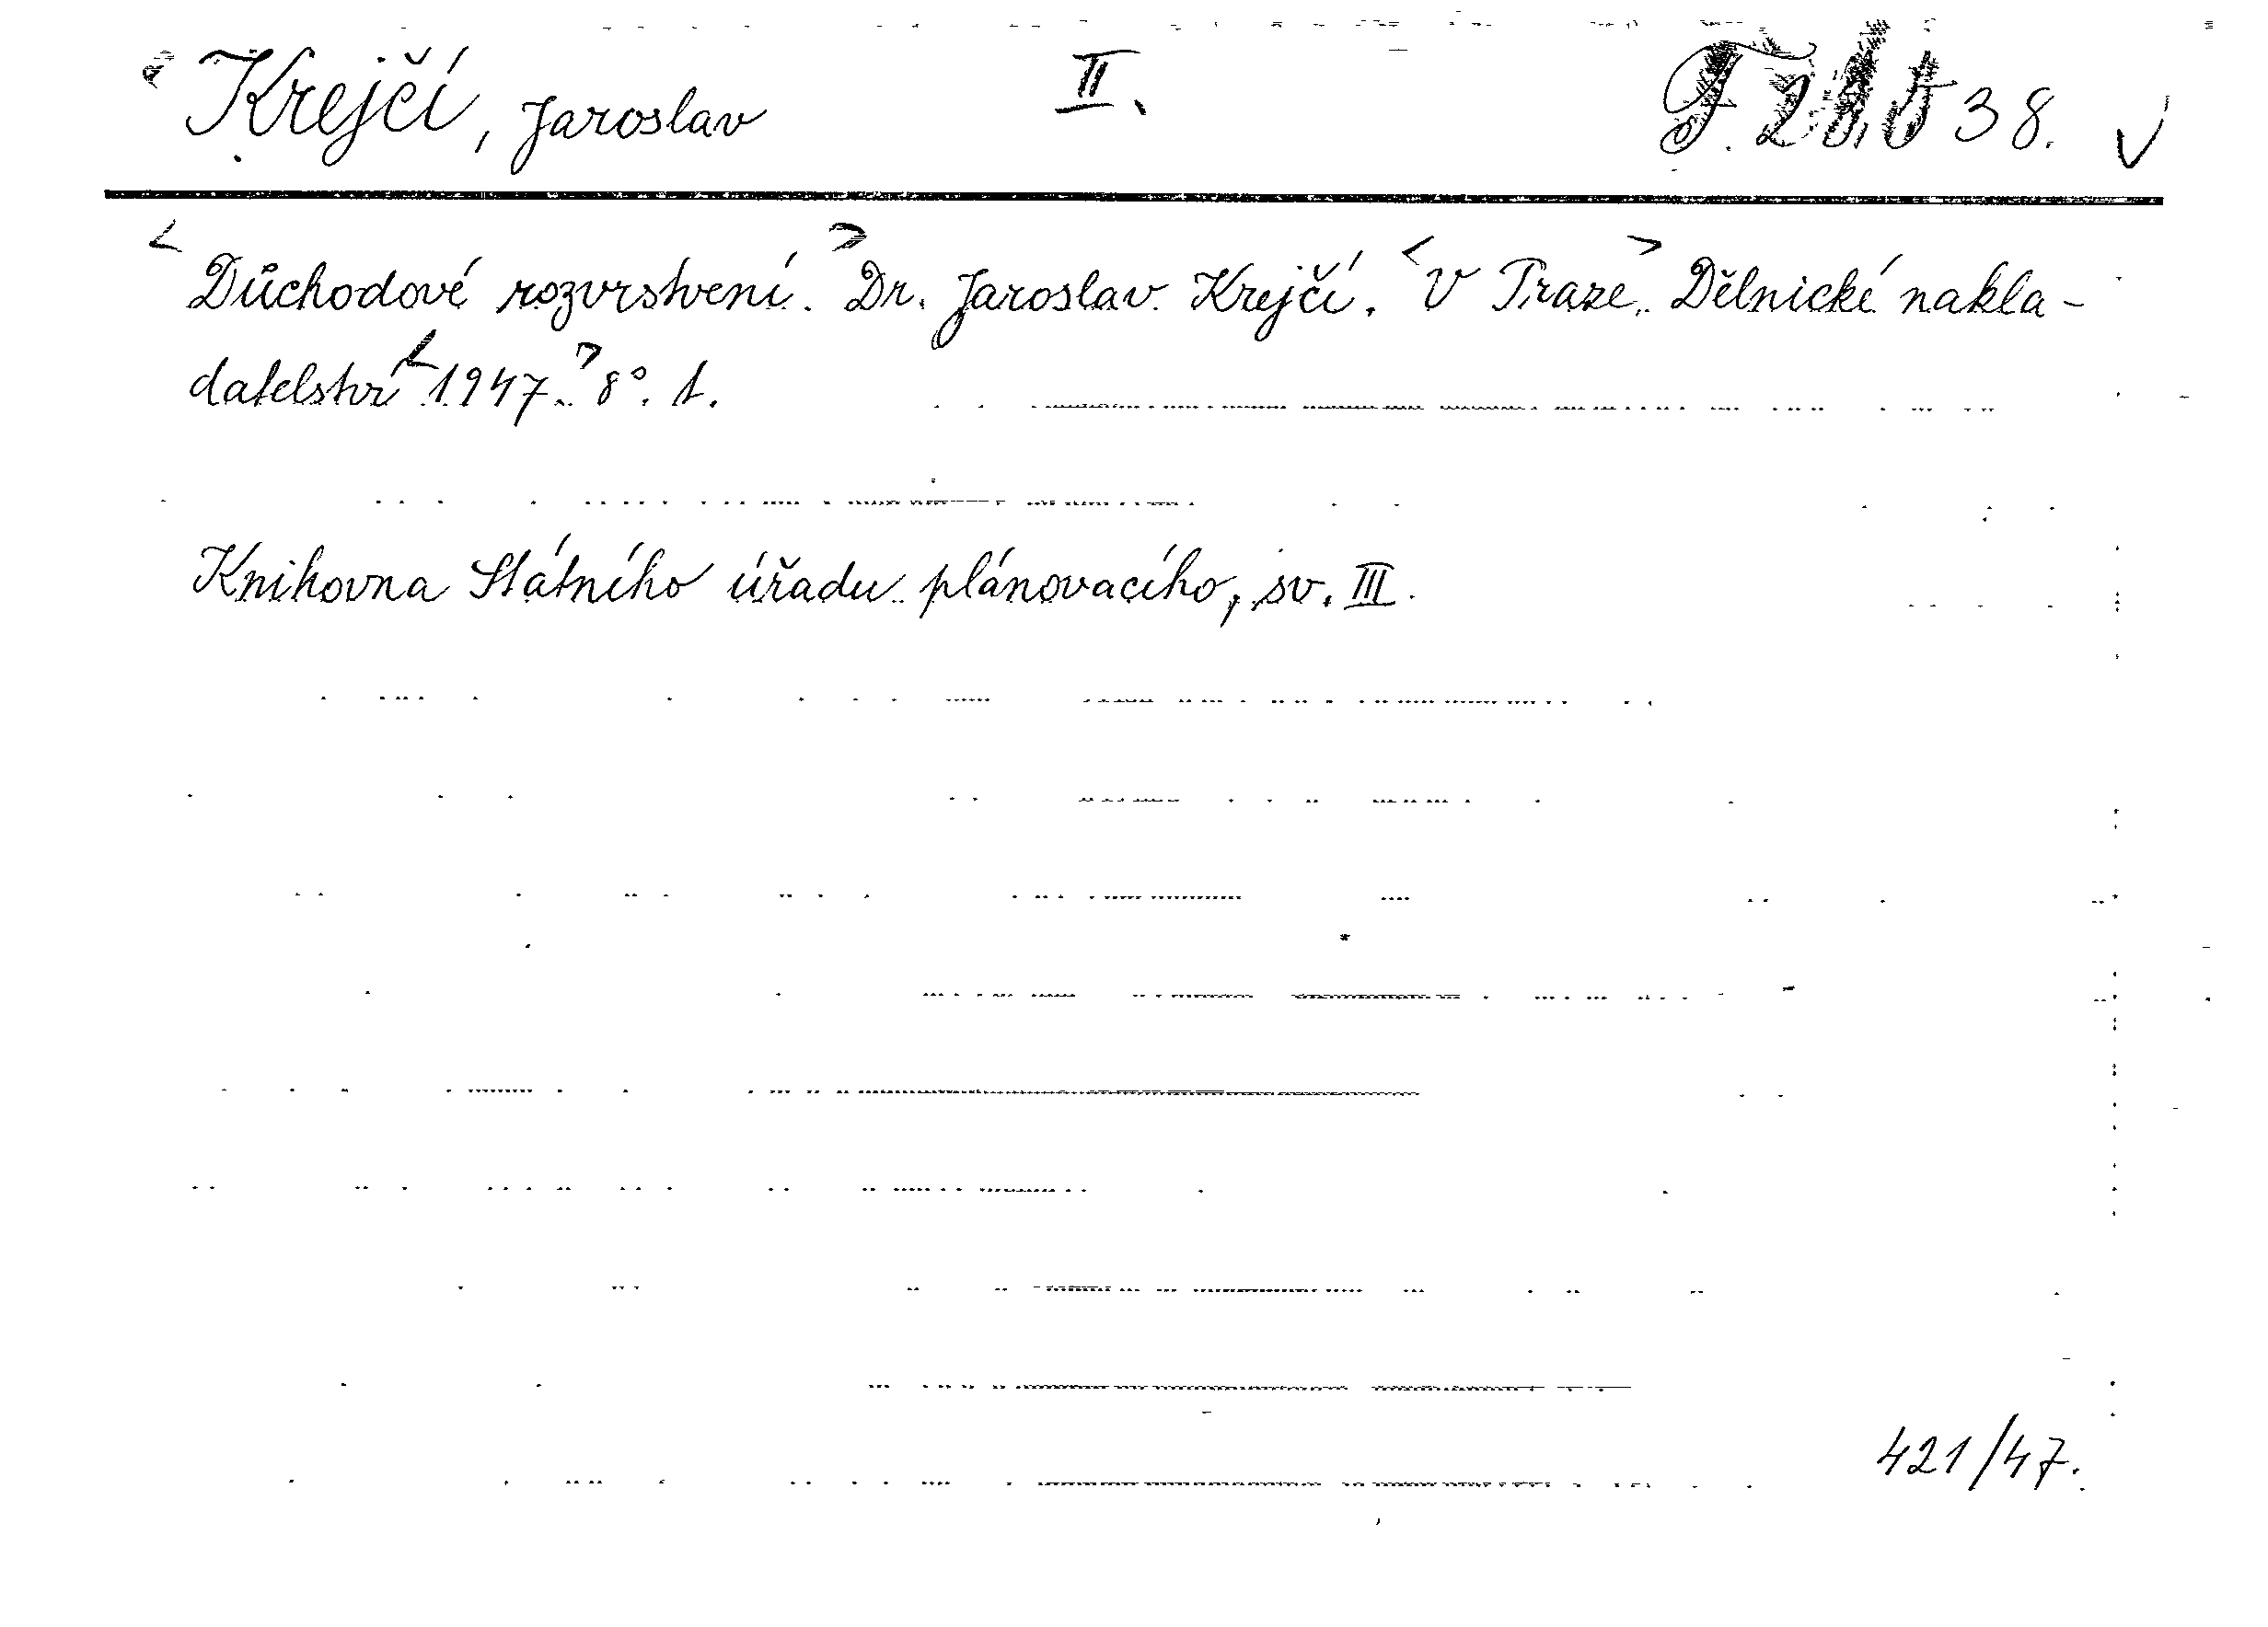 Krejčí, Jaroslav II. 38. V
< Důchodové rozvrstvení. > Dr. Jaroslav Krejčí. < V Praze. > Dělnické nakla-
datelství < 1947. > 8°. 1.
Knihovna Státního úřadu plánovacího, sv. III.
421/47.